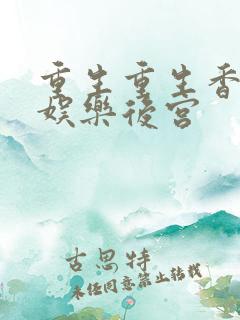 重生重生香
娱樂後宫
古思特
未经同意禁止转载